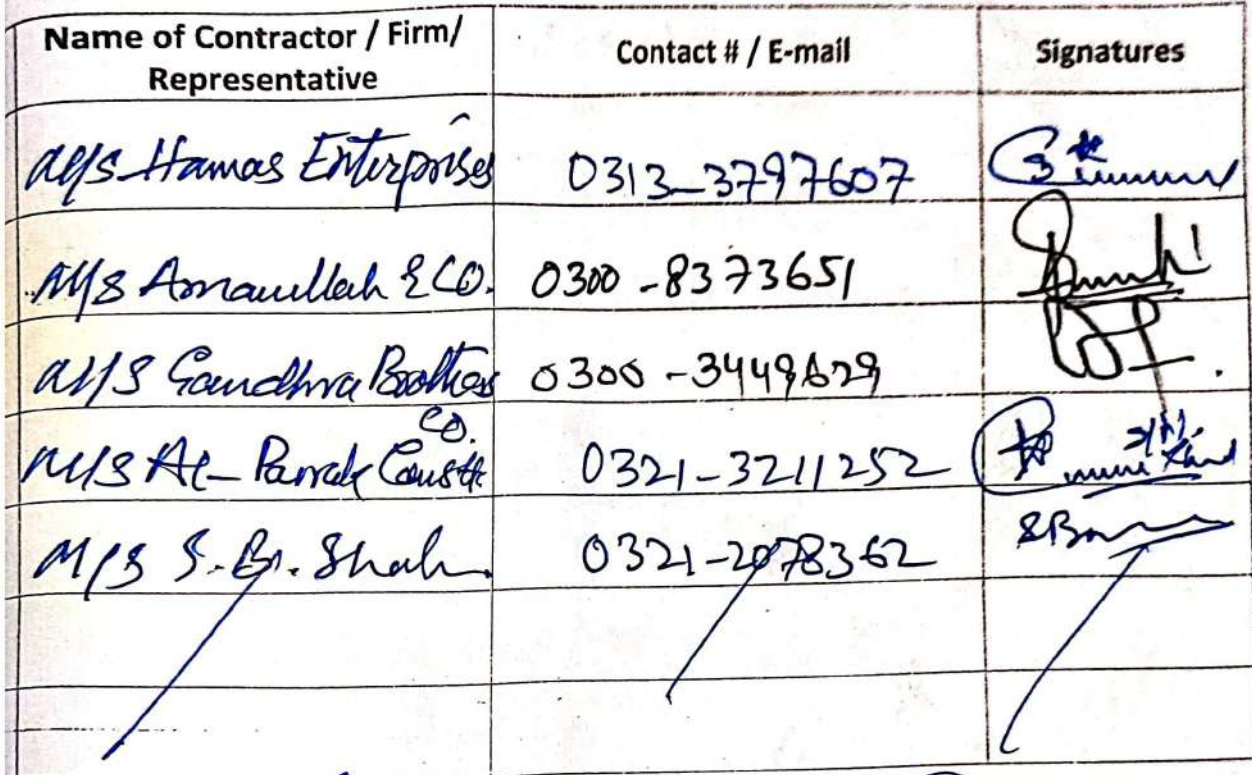 Name of Contractor / Firm/
Representative
Contact # / E-mail
Signatures
M/S Hamas Enterprises
0313-3797607
M/S Amanullah & CO.
0300-8373651
M/S Gaudhra Brothers
0300-3449629
CO.
M/S Al-Parrak Constt
0321-3211252
M/S S.B. Shah
0321-2078362